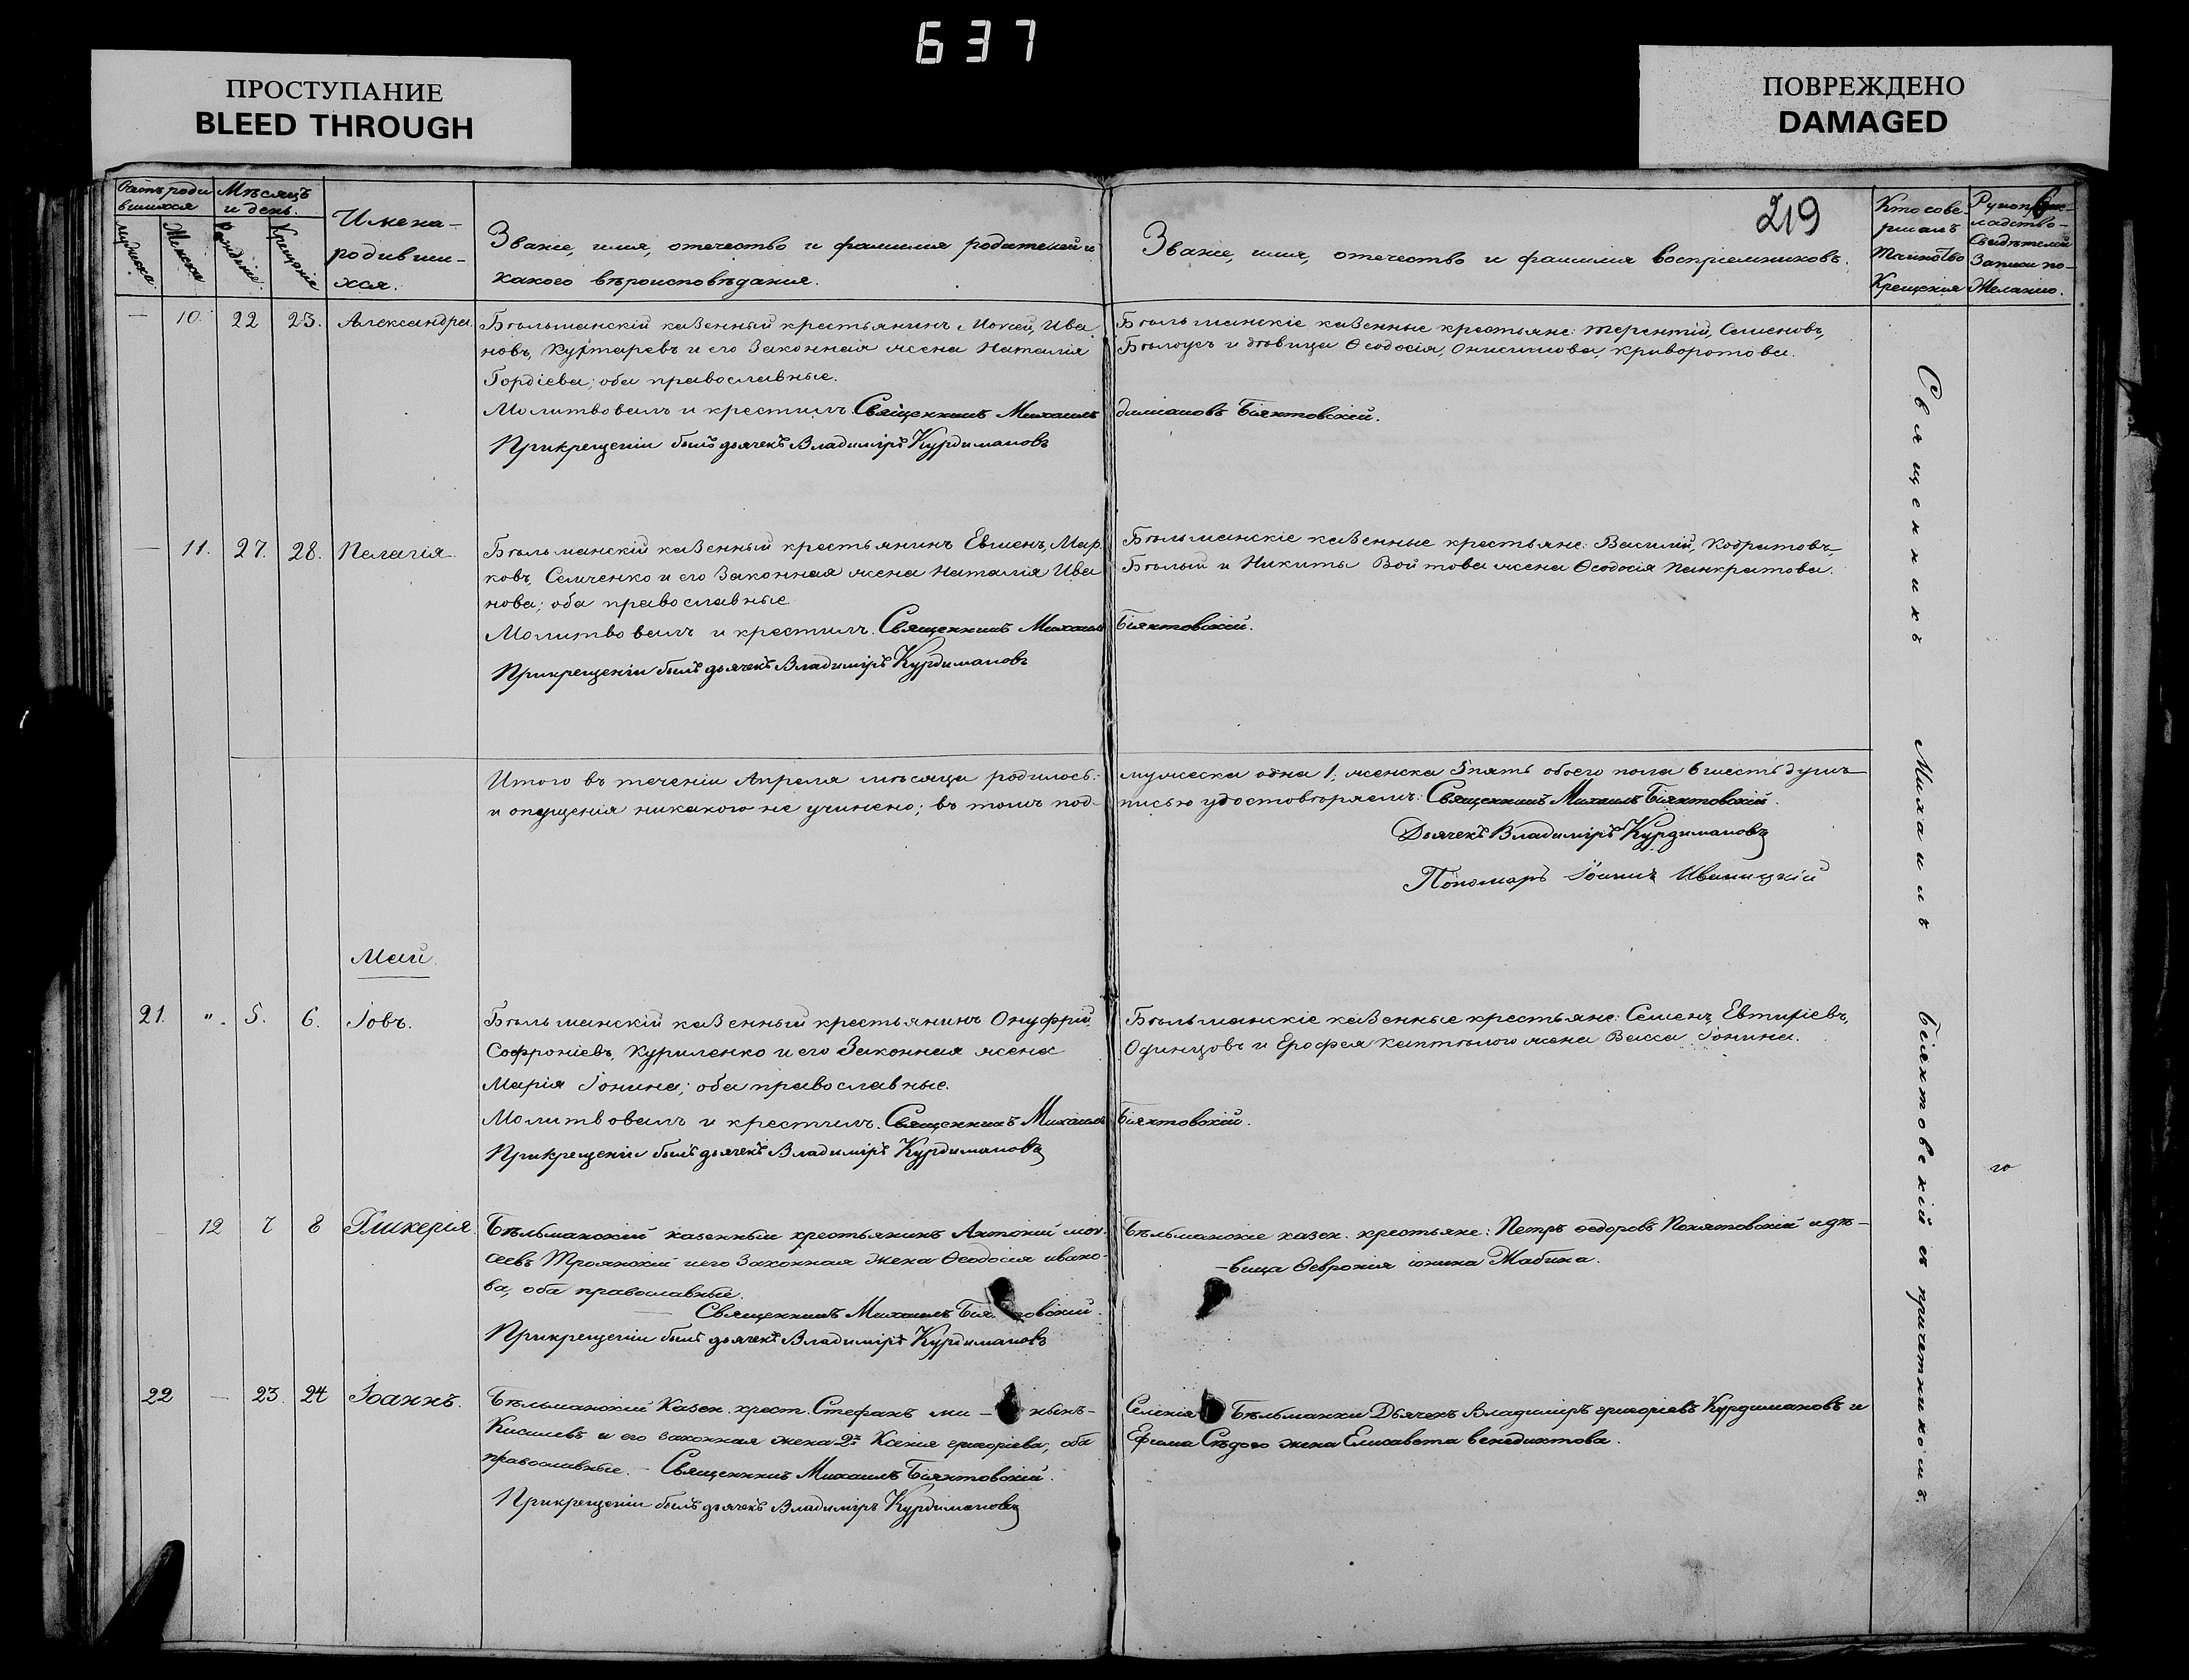 637
ПРОСТУПАНИЕ
BLEED THROUGH
ПОВРЕЖДЕНО
DAMAGED
219
Мѣсяцъ
и день.
Имена
родивши-
хся.
Званіе, имя, отечество и фамилія родителей и
какого вѣроисповѣданія.
Званіе, имя, отечество и фамилія воспріемниковъ.
Кто сове-
ршалъ
Таинство
Крещенія
Свидѣтелей
Записи по-
Желанію.
Мужеска
Женска
Рожденіе
Крещеніе
— 10. 22 23. Александра
Бѣльманскій казенный крестьянинъ Моисей, Ива
новъ, и его Законная жена Наталія
Гордіева; оба православные.
Молитвовалъ и крестилъ. Священникъ Михаилъ
Прикрещеніи былъ дьячекъ Владиміръ Курдимановъ
Бѣльманскіе казенные крестьяне: Терентій, Семеновъ,
Бѣлоусъ и дѣвица Ѳеодосія, Онисимова, Криворотова.
Даміановъ Біянтовскій.
— 11. 27. 28. Пелагія
Бѣльманскій казенный крестьянинъ Евменъ, Мар
ковъ, Семченко и его Законная жена Наталія Ива
нова; оба православные.
Молитвовалъ и крестилъ. Священникъ Михаилъ
Прикрещеніи былъ дьячекъ Владиміръ Курдимановъ
Бѣльманскіе казенные крестьяне: Василій, Кодратовъ,
Бѣлый и Никиты Войтова жена Ѳеодосія Панкратова.
Біянтовскій.
Итого въ теченіи Апреля мѣсяца родилось:
и опущенія никакого не учинено; въ томъ под-
мужеска одна 1; женска 5 пять обоего пола 6 шесть душъ
писью удостовѣряемъ: Священникъ Михаилъ Біянтовскій.
Дьячекъ Владиміръ Курдимановъ
Пономарь Іоаннъ Иваницкій
Май.
21. „. 5. 6. Іовъ.
Бѣльманскій казенный крестьянинъ Онуфрій,
Софроніевъ, Куриленко и его Законная жена
Марія Іонина; оба православные.
Молитвовалъ и крестилъ. Священникъ Михаилъ
Прикрещеніи былъ дьячекъ Владиміръ Курдимановъ
Бѣльманскіе казенные крестьяне: Семенъ, Евтихіевъ,
Одинцовъ и Ерофея жена Васса Іонина.
Біянтовскій.
12 7 8 Гликерія
Бѣльманскій казенный крестьянинъ Антоній мои-
сеевъ Троянскій и его Законная жена Ѳеодосія ивано-
ва, оба православные.
Священникъ Михаилъ
Прикрещеніи былъ дьячекъ Владиміръ Курдимановъ
Бѣльманскіе казен. крестьяне: Петръ ѳедоровъ Понятовскій и дѣ-
-вица Ѳевронія іонина Жабина.
22 — 23. 24 Іоаннъ.
Бѣльманскій Казен. крест. Стефанъ ми-
Киселевъ и его законная жена 2я Ксенія григоріева, оба
православные. — Священникъ Михаилъ Біянтовскій.
Прикрещеніи былъ дьячекъ Владиміръ Курдимановъ
Селенія Бѣльманки Дьячекъ Владиміръ григоріевъ Курдимановъ и
Ефима Сѣдого жена Елисавета венедиктова.
Священникъ Михаилъ Біянтовскій съ причетникомъ.